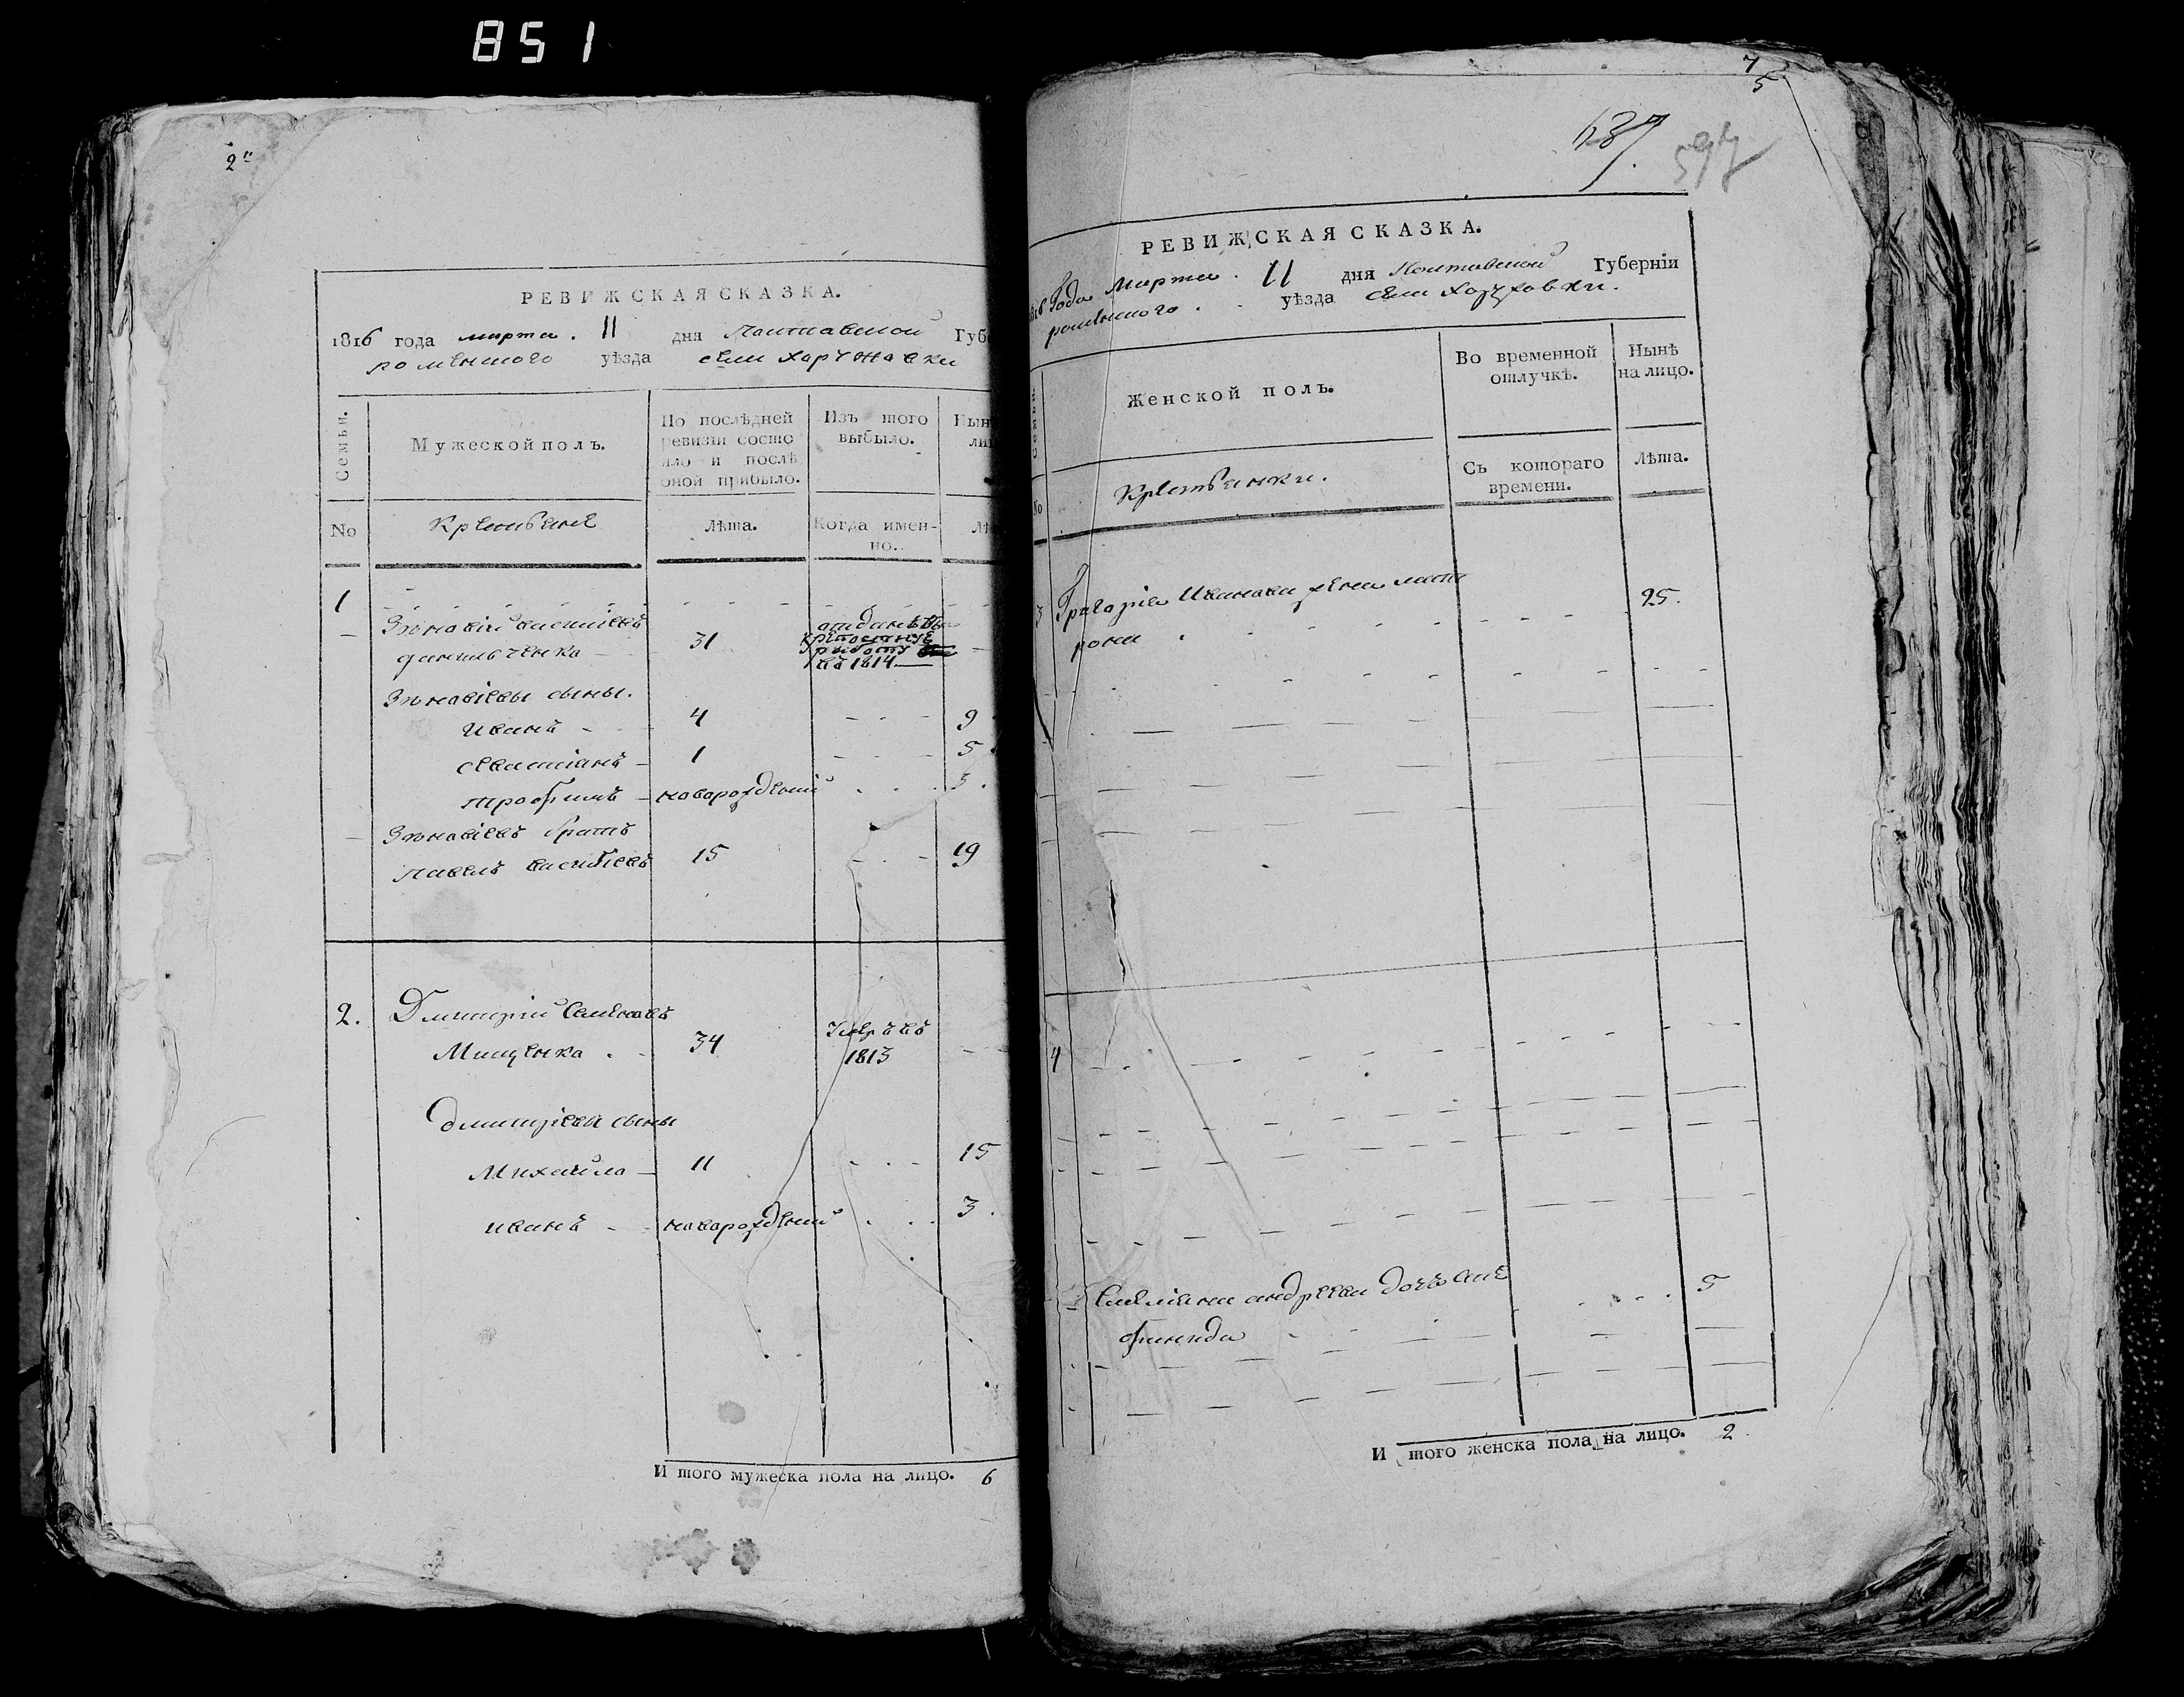 851
2
РЕВИЖСКАЯ СКАЗКА.
1816 года марта 11 дня Полтавской Губ
роменского уѣзда села
Семьи.
Мужеской полъ.
По послѣдней
ревизіи состо
яло и послѣ
оной прибыло.
Изъ того
выбыло.
Нын
ли
No
Крестьяне
лѣта.
Когда имен-
но.
лѣ
1
Зѣновій васильевъ
31
отданъ въ
крѣпостную
работу
въ 1814
Зѣновіевы сыны.
иванъ 4 9
севастіянъ 1 5
трофимъ новорожденій 3
Зѣновіевъ братъ
павелъ васильевъ 15 19
2. Дмитрій Семеновъ
Мищенко 34
умеръ въ
1813
дмитріевы сыны
Михайло 11 15
иванъ новорожденій 3
И того мужеска пола на лицо. 6
7
5
597
РЕВИЖСКАЯ СКАЗКА.
года Марта 11 дня Полтавской Губерніи
роменского уѣзда села
Семьи.
Женской полъ.
Во временной
отлучкѣ.
Нынѣ
на лицо.
No
Крестьянки.
Съ котораго
времени.
Лѣта.
3 Григорія Иванова жена мат
рона 25.
4
андреева дочь
5
И того женска пола на лицо. 2